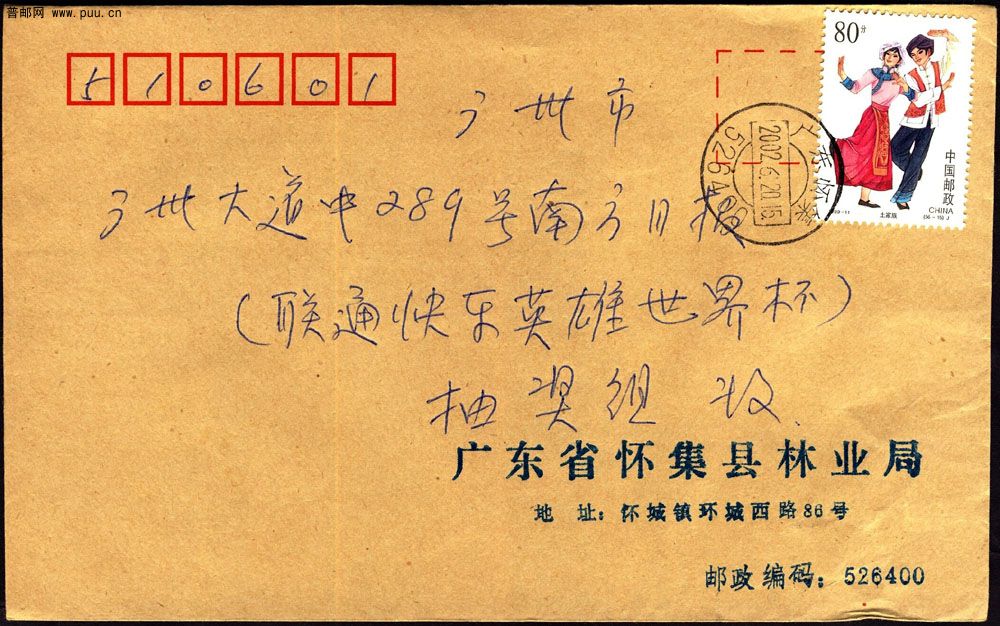 普邮网 www.puu.cn
510601
80分
中国邮政
CHINA
土家族
(56-15) J
2002.6.20.15
广东怀集
526400
广州市
广州大道中289号南方日报
(联通快乐英雄世界杯)
抽奖组 收
广东省怀集县林业局
地 址: 怀城镇环城西路86号
邮政编码: 526400